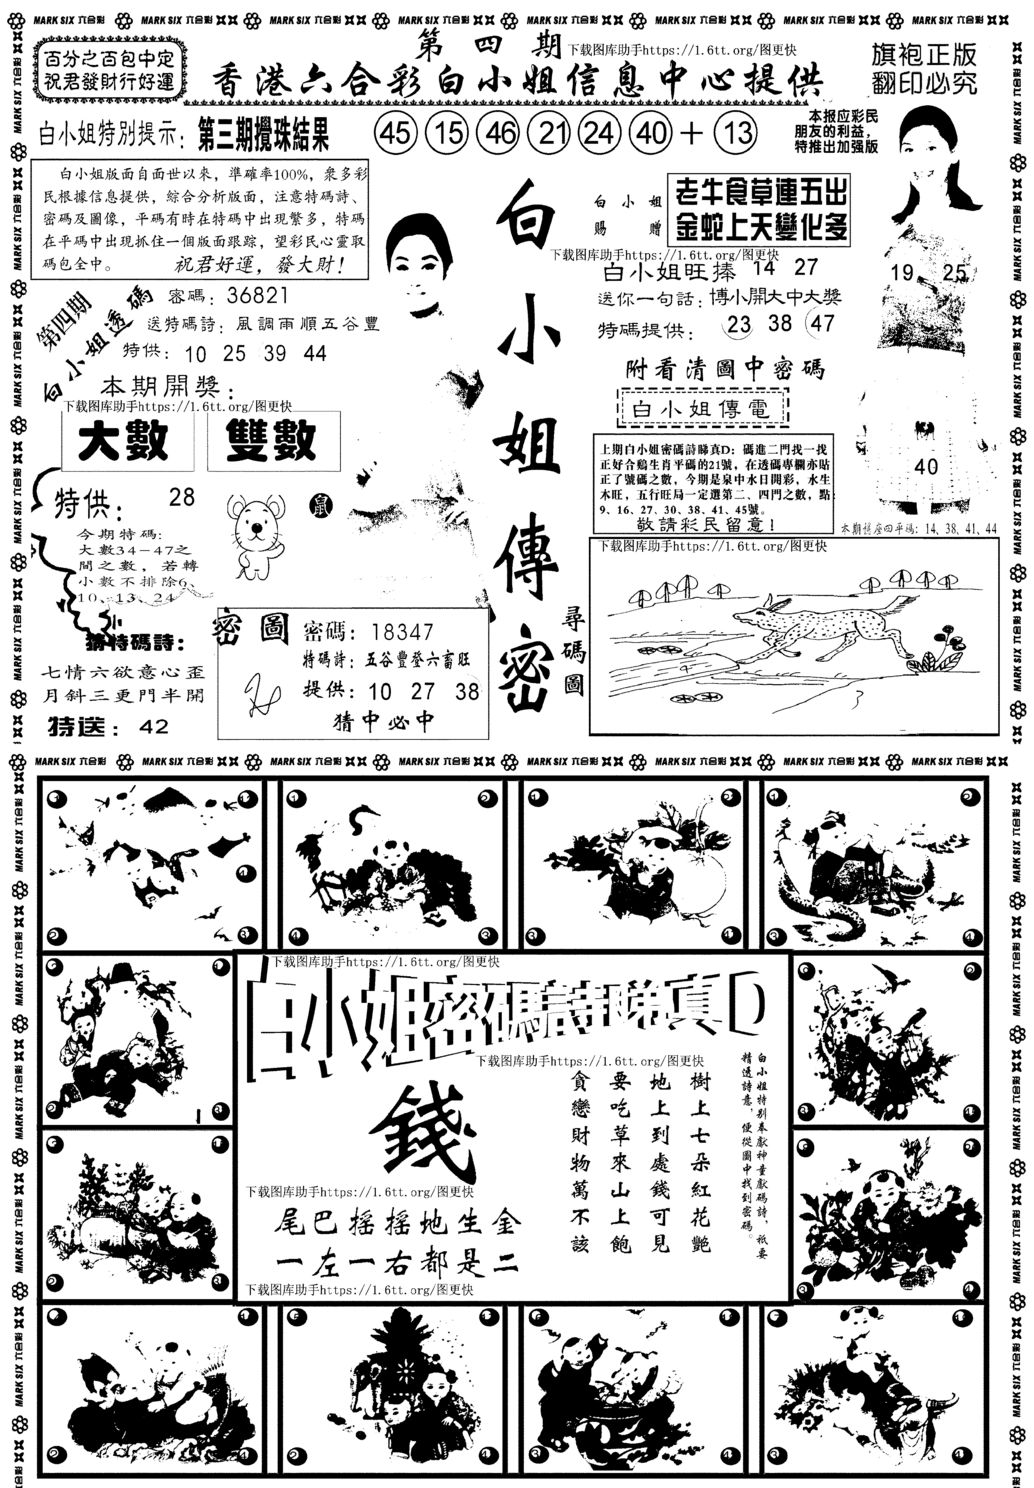 MARK SIX 六合彩 MARK SIX 六合彩 MARK SIX 六合彩 MARK SIX 六合彩 MARK SIX 六合彩 MARK SIX 六合彩 MARK SIX 六合彩 MARK SIX 六合彩
百分之百包中定
祝君發財行好運
第四期
下载图库助手https://1.6tt.org/图更快
香港六合彩白小姐信息中心提供
旗袍正版
翻印必究
白小姐特別提示：第三期攪珠結果
45 15 46 21 24 40 + 13
本报应彩民
朋友的利益，
特推出加强版
白小姐版面自面世以來，準確率100%，衆多彩
民根據信息提供，綜合分析版面，注意特碼詩、
密碼及圖像，平碼有時在特碼中出現繁多，特碼
在平碼中出現抓住一個版面跟踪，望彩民心靈取
碼包全中。 祝君好運，發大財！
第四期
白小姐透碼
密碼：36821
送特碼詩：風調雨順五谷豐
特供：10 25 39 44
本期開獎：
下载图库助手https://1.6tt.org/图更快
大數 雙數
特供： 28
今期特碼：
大數34-47之
間之數，若轉
小數不排除6、
10、13、24
鼠
猜特碼詩：
七情六欲意心歪
月斜三更門半開
特送：42
密圖
密碼：18347
特碼詩：五谷豐登六畜旺
提供：10 27 38
猜中必中
白小姐傳密
白小姐
賜贈
老牛食草連五出
金蛇上天變化多
下载图库助手https://1.6tt.org/图更快
白小姐旺捧 14 27
送你一句話：博小開大中大獎
特碼提供：23 38 47
附看清圖中密碼
白小姐傳電
上期白小姐密碼詩睇真D：碼進二門找一找
正好合鷄生肖平碼的21號，在透碼專欄亦貼
正了號碼之數，今期是泉中水日開彩，水生
木旺，五行旺局一定選第二、四門之數，點
9、16、27、30、38、41、45號。
敬請彩民留意！
19 25
40
本期旗座四平碼：14、38、41、44
下载图库助手https://1.6tt.org/图更快
尋碼圖
MARK SIX 六合彩 MARK SIX 六合彩 MARK SIX 六合彩 MARK SIX 六合彩 MARK SIX 六合彩 MARK SIX 六合彩 MARK SIX 六合彩 MARK SIX 六合彩
下载图库助手https://1.6tt.org/图更快
白小姐密碼詩睇真D
下载图库助手https://1.6tt.org/图更快
白小姐特别奉獻神童獻碼詩，祇要
精透詩意，便從圖中找到密碼。
樹上七朵紅花艷
地上到處錢可見
要吃草來山上飽
貪戀財物萬不該
錢
下载图库助手https://1.6tt.org/图更快
尾巴摇摇地生金
一左一右都是二
下载图库助手https://1.6tt.org/图更快